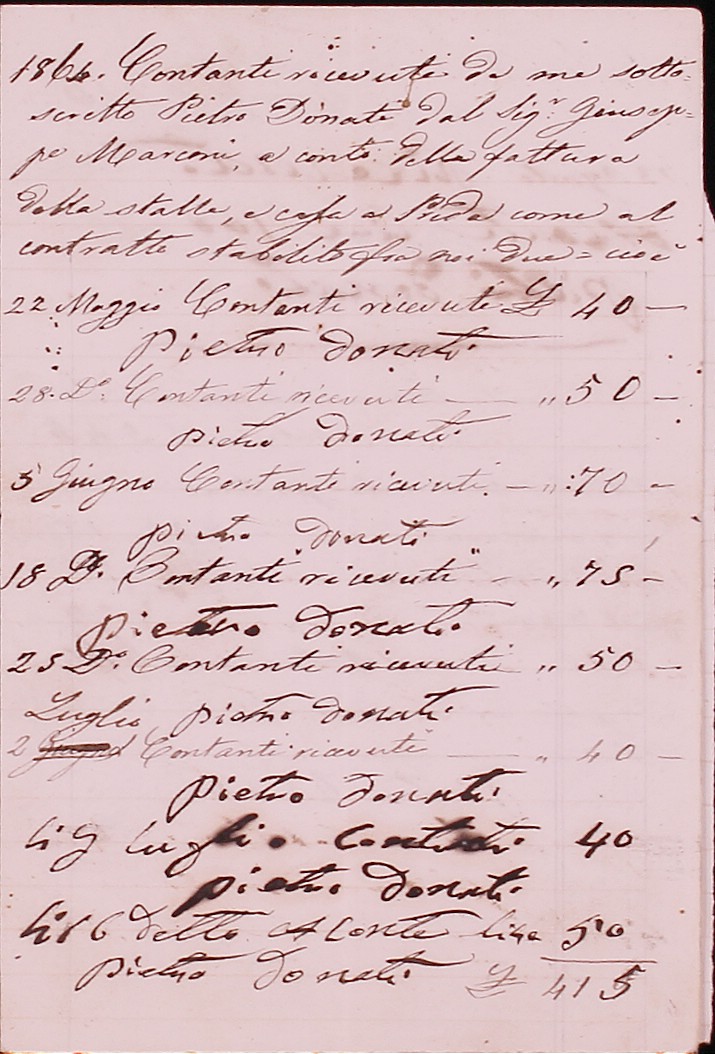 1864. Contanti ricevuti da me sotto=
scritto Pietro Donati dal Sig.r Giusep=
pe Marconi, a conto della fattura
della stalla, e casa a Preda come al
contratto stabilito fra noi due = cioè
22 Maggio Contanti ricevuti £ 40 —
Pietro Donati
28. D.o Contanti ricevuti — „ 50 —
pietro Donati
5 Giugno Contanti ricevuti. — „ : 70 —
pietro Donati
18 D.o Contanti ricevuti — „ 75 —
pietro Donati
25 D.o Contanti ricevuti „ 50 —
Luglio pietro Donati
2 Giugno Contanti ricevuti — „ 40 —
pietro Donati
li 9 luglio Contanti 40
pietro Donati
li 16 detto A Conto lire 50
pietro Donati £ 415